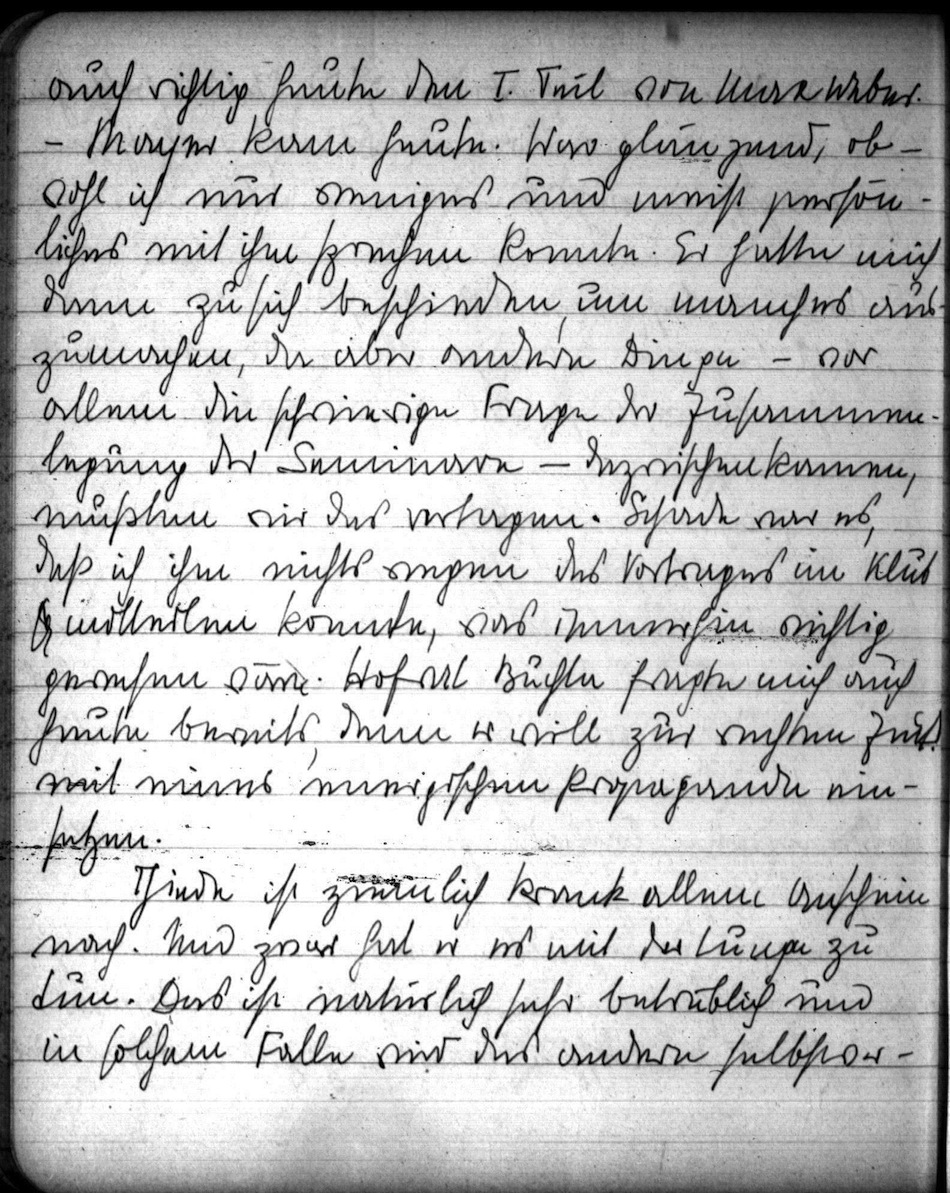 auch richtig heute den I. Teil von Max Weber.
– Mayer kam heute. War glänzend, ob-
wohl ich nur weniges und meist persön-
liches mit ihm sprechen konnte. Er hatte mich
dann zu sich beschieden, um manches aus
zumachen, da aber andere Dinge – vor
allem die schwierige Frage der Zusammen-
legung der Seminare – dazwischenkamen,
mußten wir das vertagen. Schade war es,
daß ich ihm nichts wegen des Vortrages im Klub
mitteilen konnte, was immerhin wichtig
gewesen wäre. Hofrat fragte mich auch
heute bereits, denn er will zur rechten Zeit
mit einer energischen Propaganda ein-
setzen.
ist ziemlich krank allem Anschein
nach. Und zwar hat er es mit der Lunge zu
tun. Das ist natürlich sehr betrüblich und
in solchem Falle wird das andere selbstver-